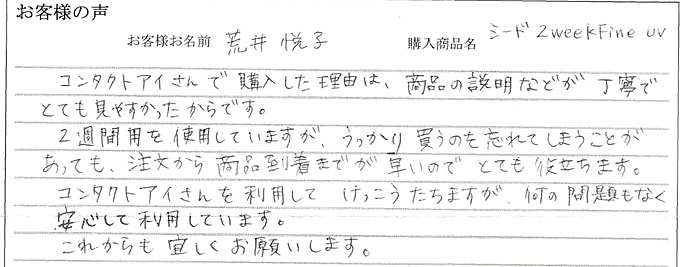 お客様の声
お客様お名前 荒井 悦子 購入商品名 シード 2weekFine UV
コンタクトアイさんで購入した理由は、商品の説明などが丁寧で
とても見やすかったからです。
2週間用を使用していますが、うっかり買うのを忘れてしまうことが
あっても、注文から商品到着までが早いのでとても役立ちます。
コンタクトアイさんを利用してけっこうたちますが、何の問題もなく
安心して利用しています。
これからも宜しくお願いします。